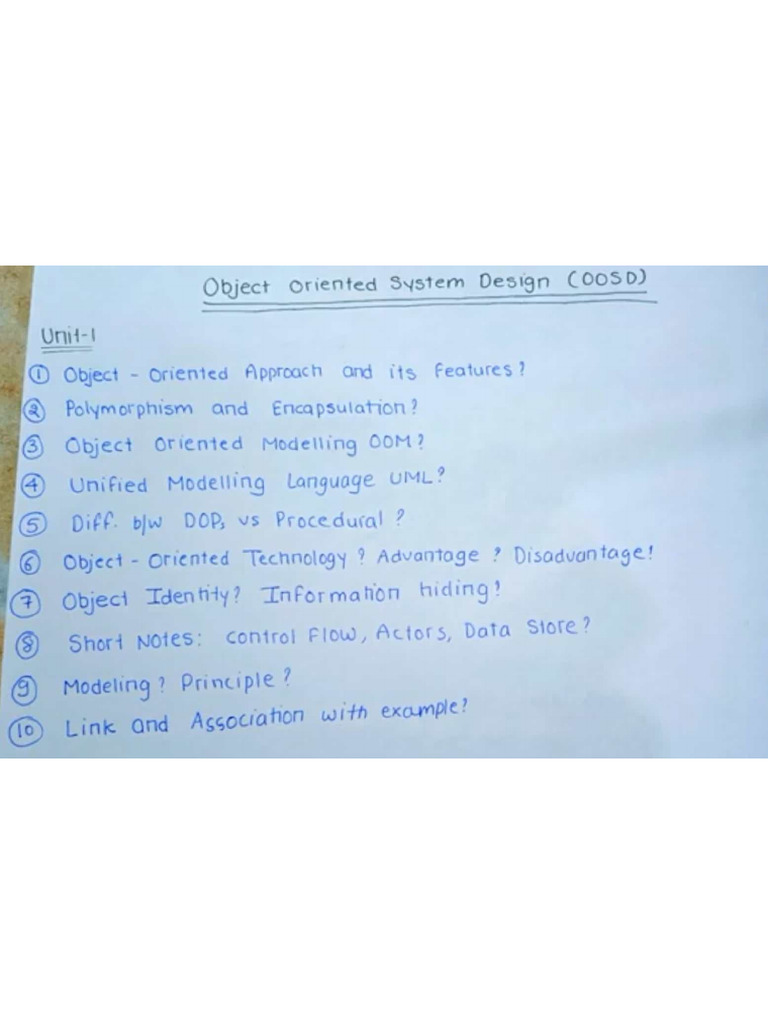 Object Oriented System Design (OOSD)
Unit-1
① Object - Oriented Approach and its Features?
② Polymorphism and Encapsulation?
③ Object Oriented Modelling OOM?
④ Unified Modelling Language UML?
⑤ Diff. b/w OOP, vs Procedural?
⑥ Object - Oriented Technology? Advantage? Disadvantage!
⑦ Object Identity? Information hiding!
⑧ Short Notes: Control Flow, Actors, Data Store?
⑨ Modeling? Principle?
⑩ Link and Association with example?